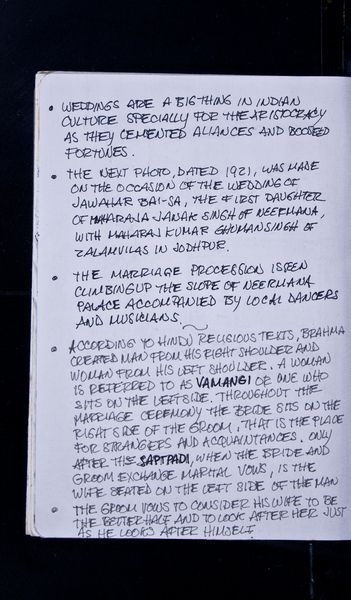 • WEDDINGS ARE A BIG THING IN INDIAN
CULTURE SPECIALLY FOR THE ARISTOCRACY
AS THEY CEMENTED ALIANCES AND BOOSTED
FORTUNES.
• THE NEXT PHOTO, DATED 1921, WAS MADE
ON THE OCCASION OF THE WEDDING OF
JAWAHAR BAI-SA, THE FIRST DAUGHTER
OF MAHARAJA JANAK SINGH OF NEEMRANA,
WITH MAHARAJ KUMAR GHUMANSINGH OF
ZALAMVILAS IN JODHPUR.
• THE MARRIAGE PROCESSION IS SEEN
CLIMBING UP THE SLOPE OF NEEMRANA
PALACE ACCOMPANIED BY LOCAL DANCERS
AND MUSICIANS.
• ACCORDING YO HINDU RELIGIOUS TEXTS, BRAHMA
CREATED MAN FROM HIS RIGHT SHOULDER AND
WOMAN FROM HIS LEFT SHOULDER. A WOMAN
IS REFERRED TO AS VAMANGI OR ONE WHO
SITS ON THE LEFT SIDE. THROUGHOUT THE
MARRIAGE CEREMONY THE BRIDE SITS ON THE
RIGHT SIDE OF THE GROOM. THAT IS THE PLACE
FOR STRANGERS AND ACQUAINTANCES. ONLY
AFTER THE SAPTPADI, WHEN THE BRIDE AND
GROOM EXCHANGE MARITAL VOWS, IS THE
WIFE SEATED ON THE LEFT SIDE OF THE MAN
• THE GROOM VOWS TO CONSIDER HIS WIFE TO BE
THE BETTER HALF AND TO LOOK AFTER HER JUST
AS HE LOOKS AFTER HIMSELF